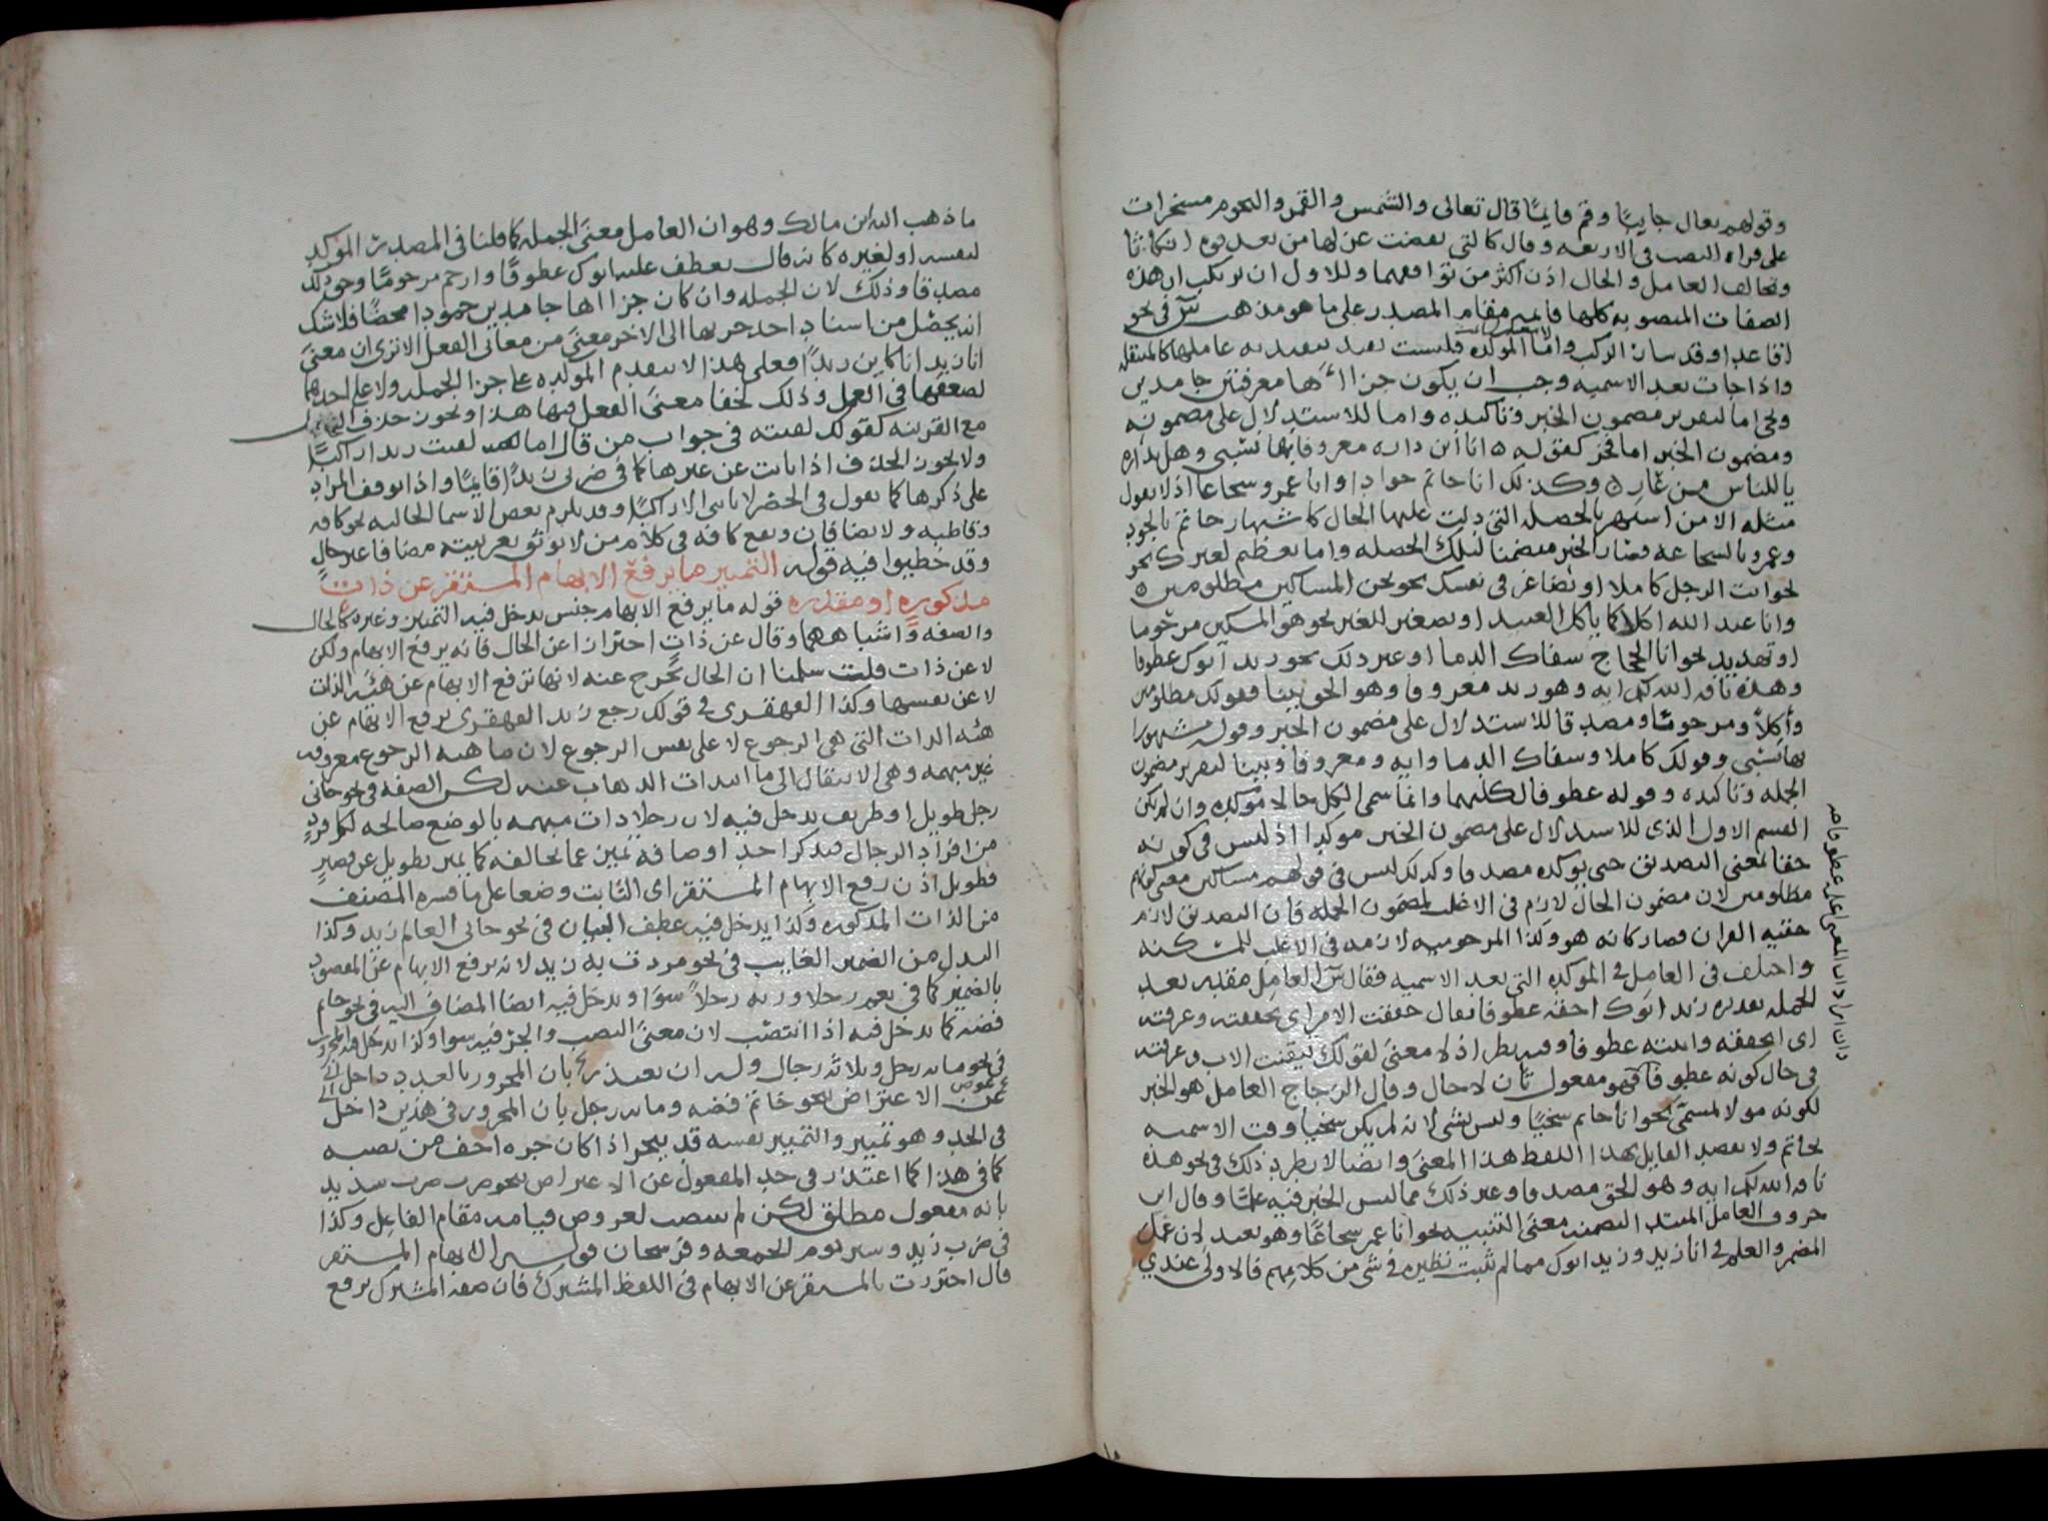 وقولهم تعال جاييًا وقم قايمًا قال تعالى والشمس والقمر والنجوم مسخرات
على قراه النصب فى الاربعه وقال كالتى نقضت غزلها من بعد قوه انكاثا
وتخالف العامل والحال اذن اكثر من توافقهما وللاول ان يرتكب ان هذه
الصفات المنصوبه كلها قايمه مقام المصدر على ما هو مذهب س فى نحو
اقاعدا وقد سار الركب واما الموكده فليست بقيد يتقيد به عاملها كالمنتقله
واذا جات بعد الاسميه وجب ان يكون جزاها معرفتين جامدين
وتجى اما لتقرير مضمون الخبر وتاكيده واما للاستدلال على مضمونه
ومضمون الخبر اما فخر كقوله ٥ انا ابن داره معروفا بها نسبى وهل بداره
يا للناس من عار ٥ وكذلك انا حاتم جوادا وانا عمرو شجاعا اذ لا يقول
مثله الا من اشتهر بالخصله التى دلت عليها الحال كاشتهار حاتم بالجود
وعمرو بالشجاعه فصار الخبر متضمنا لتلك الخصله واما تعظيم لغيرك نحو
نحو انت الرجل كاملا او تصاغر فى نفسك نحو نحن المساكين مظلومين ٥
وانا عبد الله اكلا كما ياكل العبيد او تصغير للغير نحو هو المسكين مرحوما
او تهديد نحو انا الحجاج سفاك الدما او غير ذلك نحو زيد ابوك عطوفا
وهذه ناقه الله لكم ايه وهو زيد معروفا وهو الحق بينا فقولك مظلومين
وأكلاً ومرحومًا ومصدقا للاستدلال على مضمون الخبر وقوله مشهورا
بها نسبى وقولك كاملا وسفاك الدما وايه ومعروفا وبينا لتقرير مضمون
الجمله وتاكيده وقوله عطوفا لكليهما وانما سمى الكل حالا موكده وان لم يكن
القسم الاول الذى للاستدلال على مضمون الخبر موكدا اذ ليس فى كونه
حقا لمعنى التصديق حتى يوكده مصدقا وكذلك ليس فى قولهم مساكين معنى كونهم
مظلومين لان مضمون الحال لازم فى الاغلب لمضمون الجمله فان التصديق لازم
حقيه القران فصار كانه هو وكذا المرحوميه لازمه فى الاغلب للمسكنه
واختلف فى العامل فى الموكده التى بعد الاسميه فقال س العامل مقدر بعد
الجمله تقديره زيد ابوك احقه عطوفا يقال حققت الامر اى تحققته وعرفته
اى اتحققه واثبته عطوفا وفيه نظر اذ لا معنى لقولك تيقنت الاب وعرفته
فى حال كونه عطوفا فهو مفعول ثان لا حال وقال الزجاج العامل هو الخبر
لكونه مولا لمسمى نحو انا حاتم سخيًا وليس بشى لانه لم يكن سخيا وقت الاسميه
بحاتم ولا يقصد القايل بهذا اللفظ هذا المعنى وايضا لا يطرد ذلك فى نحو هذه
ناقه الله لكم ايه وهو الحق مصدقا وغير ذلك مما ليس الخبر فيه علمًا وقال ابن
خروف العامل المبتدا لتضمنه معنى التنبيه نحو انا عمرو شجاعًا وهو بعيد لان عمل
المضمر والعلم فى انا زيد وزيد ابوك مما لم تثبت نظيره فى شى من كلامهم فالاولى عندى
ما ذهب اليه ابن مالك وهو ان العامل معنى الجمله كما قلنا فى المصدر الموكد
لنفسه او لغيره كانه قال يعطف عليك ابوك عطوفًا وارحم مرحومًا وحق ذلك
مصدقا وذلك لان الجمله وان كان جزااها جامدين جمودا محضًا فلا شك
انه يحصل من اسناد احد جزيها الى الاخر معنى من معانى الفعل الا ترى ان معنى
انا زيد انا كاين زيدًا فعلى هذا لا يتقدم الموكده على جزا الجمله ولا على احدهما
لضعفها فى العمل وذلك لخفا معنى الفعل فيها هذا ويجوز حذف الحال
مع القرينه كقولك لقيته فى جواب من قال اما لقيت زيدا راكبًا
ولا يجوز الحذف اذا نابت عن غيرها كما فى ضربى زيدًا قايمًا واذا توقف المراد
على ذكرها كما يقول فى الحصر لا تاتنى الا راكبًا وقد يلزم بعض الاسما الحاليه نحو كافه
وقاطبه ولا يضافان وتقع كافه فى كلام من لا يوثق بعربيته مضافا غير حال
وقد خطيوا فيه قوله التمييز ما يرفع الابهام المستقر عن ذات
مذكوره او مقدره قوله ما يرفع الابهام جنس يدخل فيه التمييز وغيره كالحال
والصفه واشباههما وقال عن ذات احترازا عن الحال فانه يرفع الابهام ولكن
لا عن ذات قلت سلمنا ان الحال تخرج عنه لانها ترفع الابهام عن هيه الذات
لا عن نفسها وكذا القهقرى فى قولك رجع زيد القهقرى يرفع الابهام عن
هيه الذات التى هى الرجوع لا على نفس الرجوع لان ماهيه الرجوع معروفه
غير مبهمه وهى الانتقال الى ما ابتدات الذهاب عنه لكن الصفه فى نحو جانى
رجل طويل او ظريف يدخل فيه لان رجلا ذات مبهمه بالوضع صالحه لكل فرد
من افراد الرجال فبذكر احد اوصافه تميز عما يخالفه كما يميز بطويل عن قصير
فطويل اذن رفع الابهام المستقر اى الثابت وضعا على ما فسره المصنف
من الذات المذكوره وكذا يدخل فيه عطف البيان فى نحو جانى العالم زيد وكذا
البدل من الضمير الغايب فى نحو مررت به زيد لانه يرفع الابهام عن المقصود
بالضمير كما فى نعم رجلا وربه رجلاً سوا ويدخل فيه ايضا المضاف اليه فى نحو خاتم
فضه كما يدخل فيه اذا انتصب لان معنى النصب والجر فيه سوا وكذا يدخل فيه المجرور
فى نحو مايه رجل وثلاثه رجال وله ان يعتذر بان المجرور بالعدد داخل
عن الاعتراض نحو خاتم فضه ومايه رجل بان المجرور فى هذين داخل
فى الحد وهو تمييز والتمييز نفسه قد ينجر اذا كان جره اخف من نصبه
كما فى هذا كما اعتذر فى حد المفعول عن الاعتراض نحو ضرب ضرب شديد
بانه مفعول مطلق لكن لم ينصب لعروض قيامه مقام الفاعل وكذا
فى ضرب زيد وسير يوم الجمعه وفرسخان قوله الابهام المستقر
قال احترزت بالمستقر عن الابهام فى اللفظ المشترك فان صفه المشترك يرفع